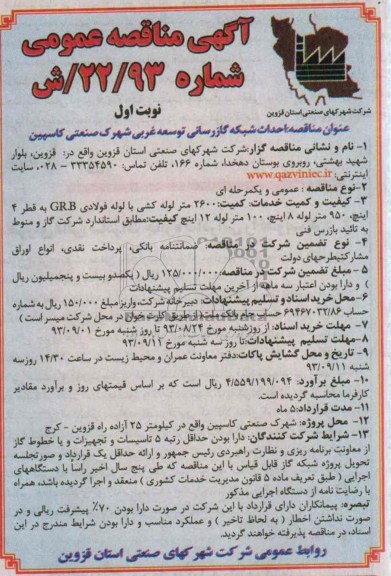 آگهی مناقصه عمومی
شماره ۲۲/۹۳/ش
نوبت اول
شرکت شهرکهای صنعتی استان قزوین
عنوان مناقصه:احداث شبکه گازرسانی توسعه غربی شهرک صنعتی کاسپین
۱- نام و نشانی مناقصه گزار:شرکت شهرکهای صنعتی استان قزوین واقع در: قزوین، بلوار
شهید بهشتی، روبروی بوستان دهخدا، شماره ۱۶۶، تلفن تماس: ۳۳۳۵۴۵۹۰ -۰۲۸ سایت
اینترنتی: www.qazviniec.ir
۲-نوع مناقصه : عمومی و یکمرحله ای
۳- کیفیت و کمیت خدمات: کمیت:۲۶۰۰ متر لوله کشی با لوله فولادی GRB به قطر ۴
اینچ، ۹۵۰ متر لوله ۸ اینچ، ۱۰۰ متر لوله ۱۲ اینچ کیفیت:مطابق استاندارد شرکت گاز و منوط
به تائید بازرس فنی
۴- نوع تضمین شرکت در مناقصه: ضمانتنامه بانکی، پرداخت نقدی، انواع اوراق
مشارکتبطرحهای دولت
۵ - مبلغ تضمین شرکت در مناقصه:۱۲۵/۰۰۰/۰۰۰ ریال ( یکصدو بیست و پنجمیلیون ریال
) و دارا بودن اعتبار سه ماهه از آخرین مهلت تسلیم پیشنهادات
۶-محل خرید اسناد و تسلیم پیشنهادات: دبیرخانه شرکت، واریز مبلغ ۱۵۰/۰۰۰ ریال به شماره
حساب ۶۹۴۶۷۰۳۲/۸۶ جام بانک ملت ( از طریق کارت خوان در محل شرکت میسر است )
۷- مهلت خرید اسناد: از روزشنبه مورخ ۹۳/۰۸/۲۴ تا روز شنبه مورخ ۹۳/۰۹/۰۱
۸-مهلت تسلیم پیشنهادات:تا روز سه شنبه مورخ ۹۳/۰۹/۱۱
۹- تاریخ و محل گشایش پاکات:دفتر معاونت عمران و محیط زیست در ساعت ۱۴/۳۰ روز سه
شنبه ۹۳/۰۹/۱۱
۱۰- مبلغ برآورد: ۴/۵۵۹/۱۹۹/۰۹۴ ریال است که بر اساس قیمتهای روز و برآورد مقادیر
کارفرما محاسبه گردیده است.
۱۱- مدت قرارداد:۵ ماه
۱۲- محل پروژه: شهرک صنعتی کاسپین واقع در کیلومتر ۲۵ آزاده راه قزوین - کرج
۱۳- شرایط شرکت کنندگان: دارا بودن حداقل رتبه ۵ تاسیسات و تجهیزات و یا خطوط گاز
از معاونت برنامه ریزی و نظارت راهبردی رئیس جمهور و ارائه حداقل یک قرارداد و صورتجلسه
تحویل پروژه شبکه گاز قابل قیاس با این مناقصه که طی پنج سال اخیر رأساً با دستگاههای
اجرایی ( طبق تعریف ماده ۵ قانون مدیریت خدمات کشوری ) منعقد و اجرا گردیده باشد، همراه
با رضایت نامه از دستگاه اجرایی مذکور
تبصره: پیمانکاران دارای قرارداد با این شرکت در صورت دارا بودن ۷۰٪ پیشرفت ریالی و در
صورت نداشتن اخطار ( به لحاظ تاخیر ) و عملکرد مناسب و دارا بودن شرایط مندرج در این
اسناد، در مناقصه پذیرفته خواهند گردید.
روابط عمومی شرکت شهرکهای صنعتی استان قزوین